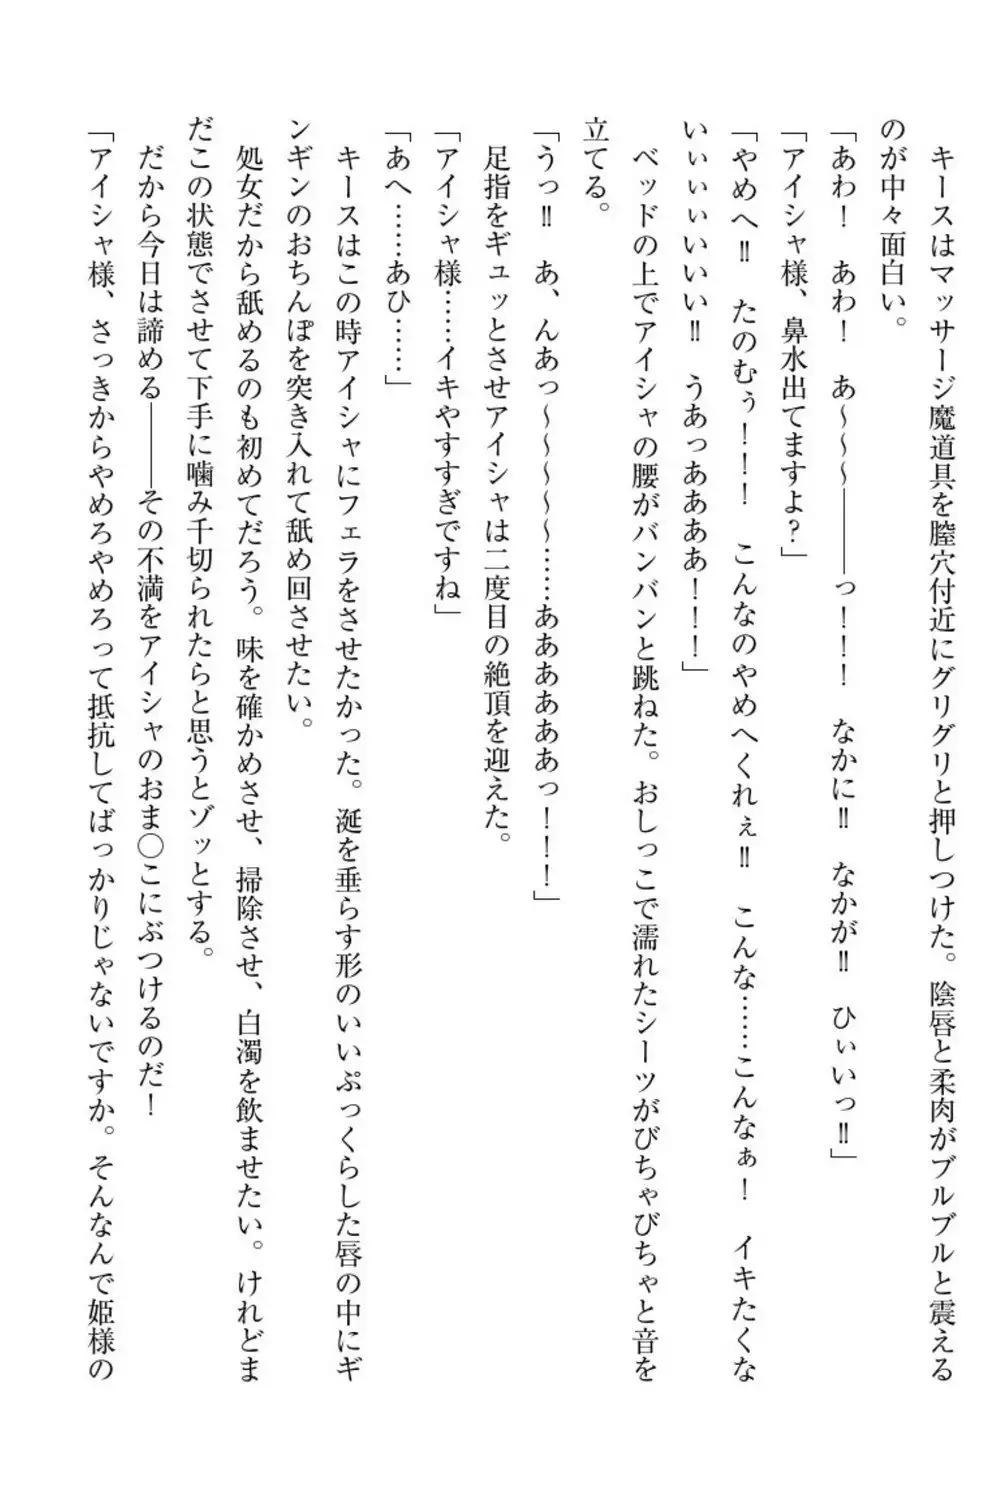 キースはマッサージ魔道具を膣穴付近にグリグリと押しつけた。陰唇と柔肉がブルブルと震える
のが中々面白い。
「あわ！　あわ！　あ～～～───っ！！！　なかに‼　なかが‼　ひぃいっ‼」
「アイシャ様、鼻水出てますよ？」
「やめへ‼　たのむぅ！！！　こんなのやめへくれぇ‼　こんな……こんなぁ！　イキたくな
いぃぃぃいいい‼　うあっああああ！！！」
　ベッドの上でアイシャの腰がバンバンと跳ねた。おしっこで濡れたシーツがびちゃびちゃと音を
立てる。
「うっ‼　あ、んあっ～～～～～……ああああああっ！！！」
　足指をギュッとさせアイシャは二度目の絶頂を迎えた。
「アイシャ様……イキやすすぎですね」
「あへ……あひ……」
　キースはこの時アイシャにフェラをさせたかった。涎を垂らす形のいいぷっくらした唇の中にギ
ンギンのおちんぽを突き入れて舐め回させたい。
　処女だから舐めるのも初めてだろう。味を確かめさせ、掃除させ、白濁を飲ませたい。けれどま
だこの状態でさせて下手に噛み千切られたらと思うとゾッとする。
　だから今日は諦める───その不満をアイシャのおま〇こにぶつけるのだ！
「アイシャ様、さっきからやめろやめろって抵抗してばっかりじゃないですか。そんなんで姫様の